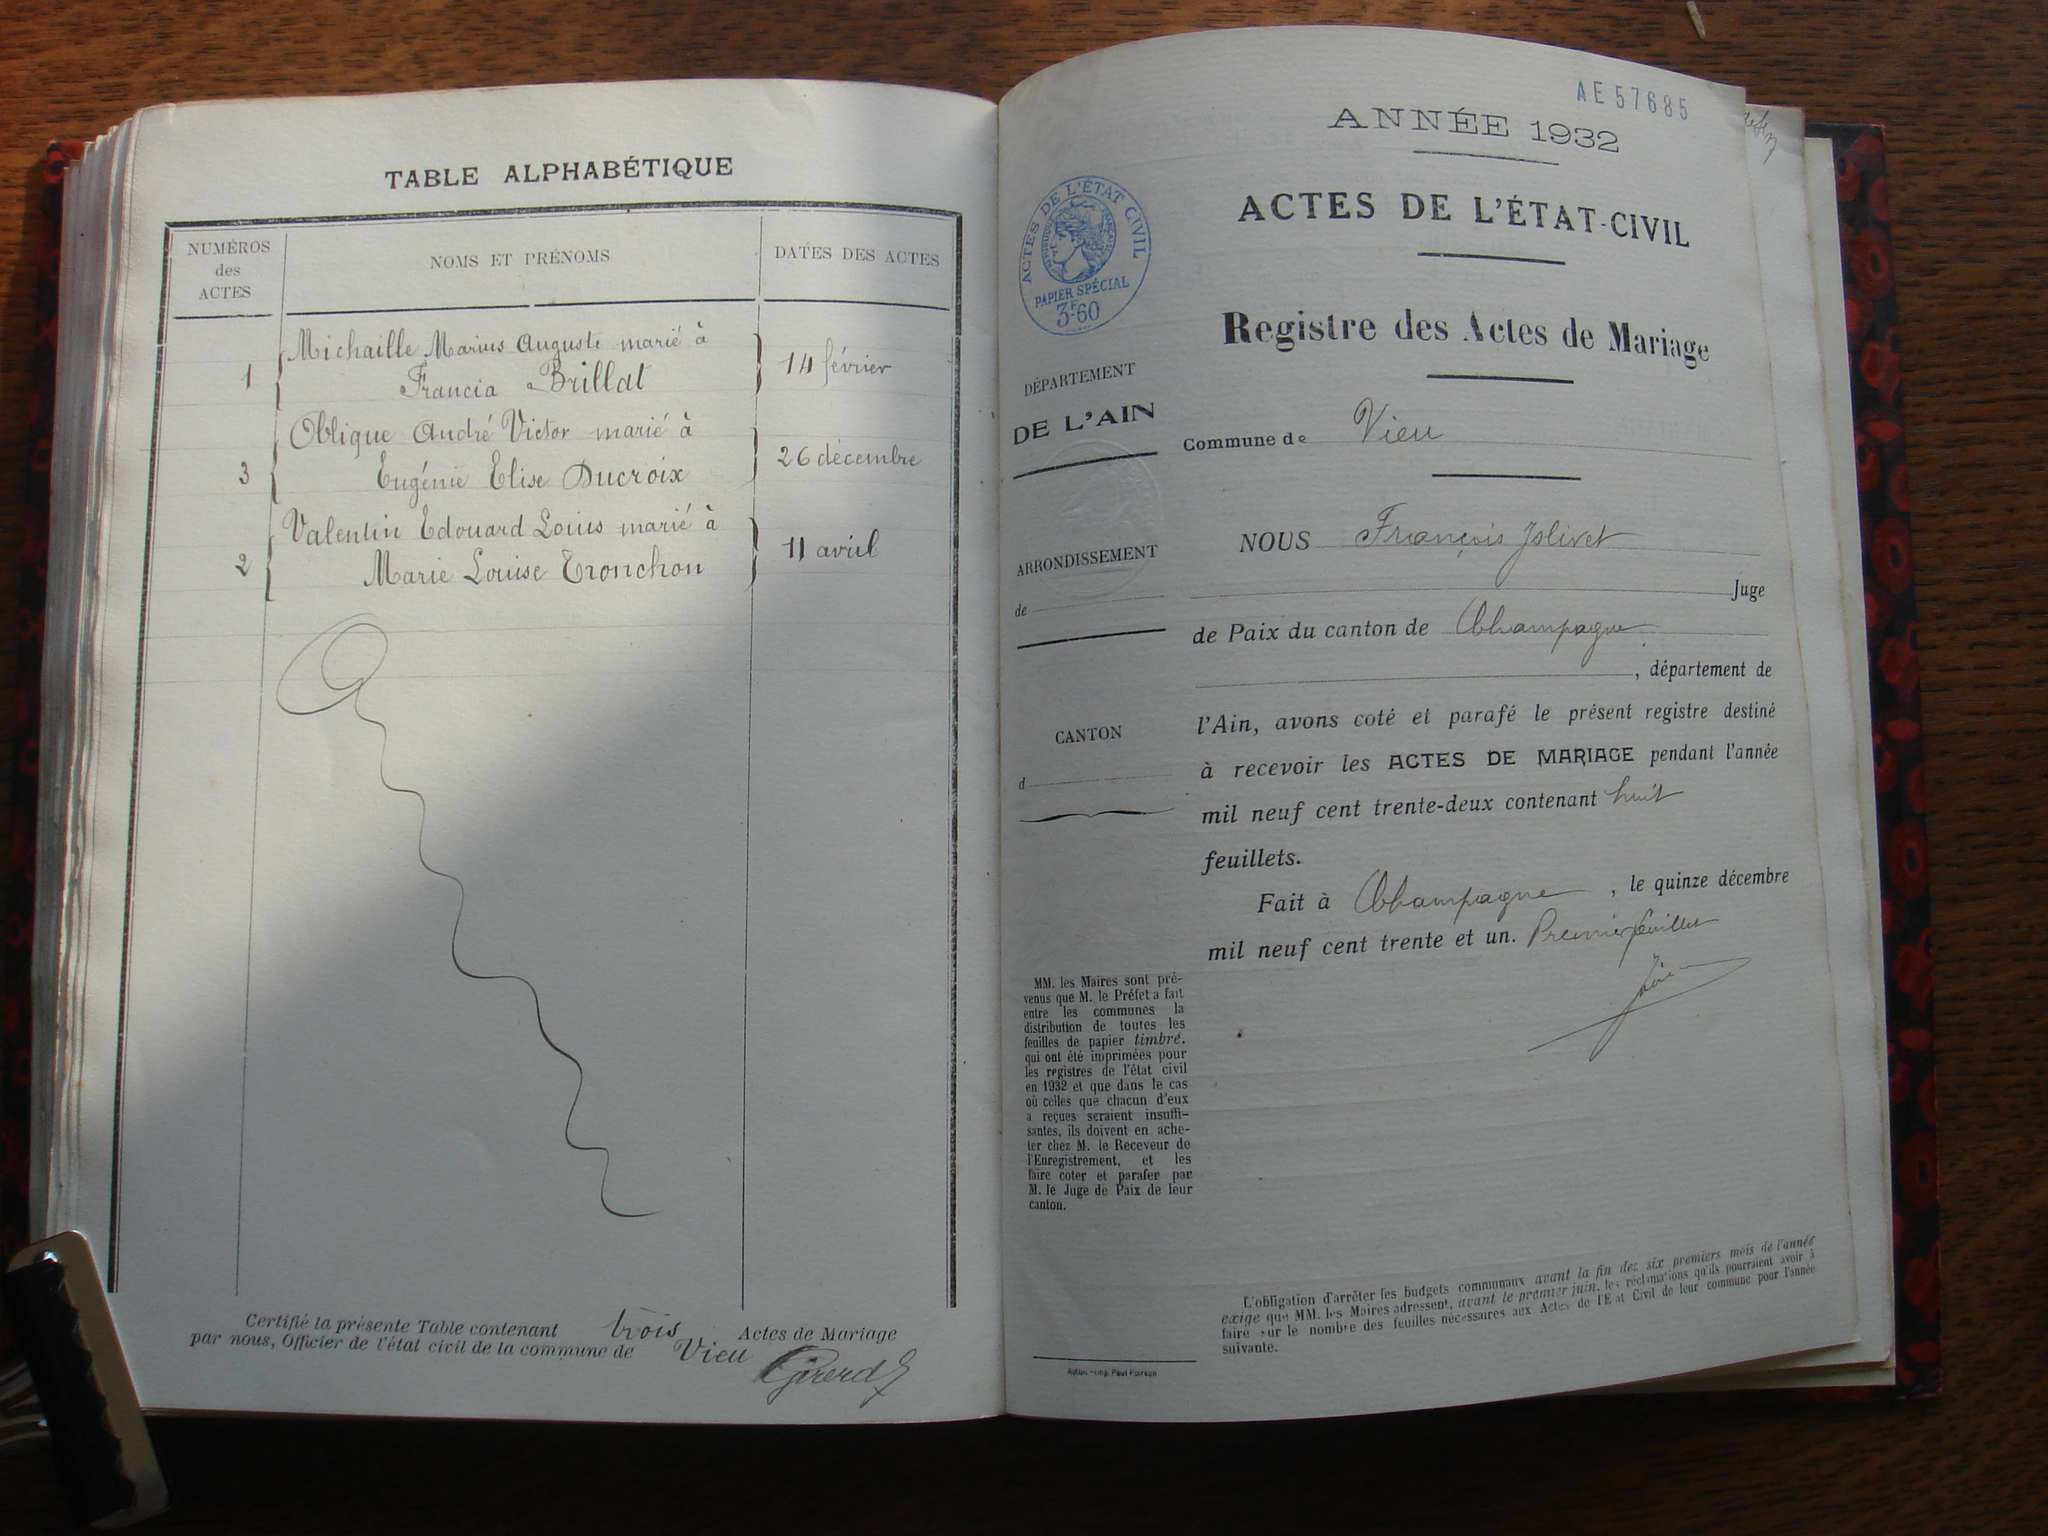 TABLE ALPHABÉTIQUE
NUMÉROS
des
ACTES
NOMS ET PRÉNOMS
DATES DES ACTES
Michaille Marius Auguste marié à
1
Francia Brillat
14 février
Oblique André Victor marié à
3
Eugénie Elise Ducroix
26 décembre
Valentin Edouard Louis marié à
2
Marie Louise Tronchon
11 avril
Certifié la présente Table contenant trois Actes de Mariage
par nous, Officier de l'état civil de la commune de Vieu
AE57685
ANNÉE 1932
ACTES DE L'ÉTAT CIVIL
PAPIER SPÉCIAL
3F60
ACTES DE L'ÉTAT-CIVIL
Registre des Actes de Mariage
DÉPARTEMENT
DE L'AIN
Commune de Vieu
ARRONDISSEMENT
de
NOUS François Jolivet
Juge
de Paix du canton de Champagne
, département de
CANTON
d
l'Ain, avons coté et parafé le présent registre destiné
à recevoir les ACTES DE MARIAGE pendant l'année
mil neuf cent trente-deux contenant huit
feuillets.
Fait à Champagne , le quinze décembre
mil neuf cent trente et un. Premier feuillet
MM. les Maires sont pré-
venus que M. le Préfet a fait
entre les communes la
distribution de toutes les
feuilles de papier timbré.
qui ont été imprimées pour
les registres de l'état civil
en 1932 et que dans le cas
où celles que chacun d'eux
a reçues seraient insuffi-
santes, ils doivent en ache-
ter chez M. le Receveur de
l'Enregistrement, et les
faire coter et parafer par
M. le Juge de Paix de leur
canton.
L'obligation d'arrêter les budgets communaux avant la fin des six premiers mois de l'année
exige que MM. les Maires adressent, avant le premier juin, les réclamations qu'ils pourraient avoir à
faire sur le nombre des feuilles nécessaires aux Actes de l'Etat Civil de leur commune pour l'année
suivante.